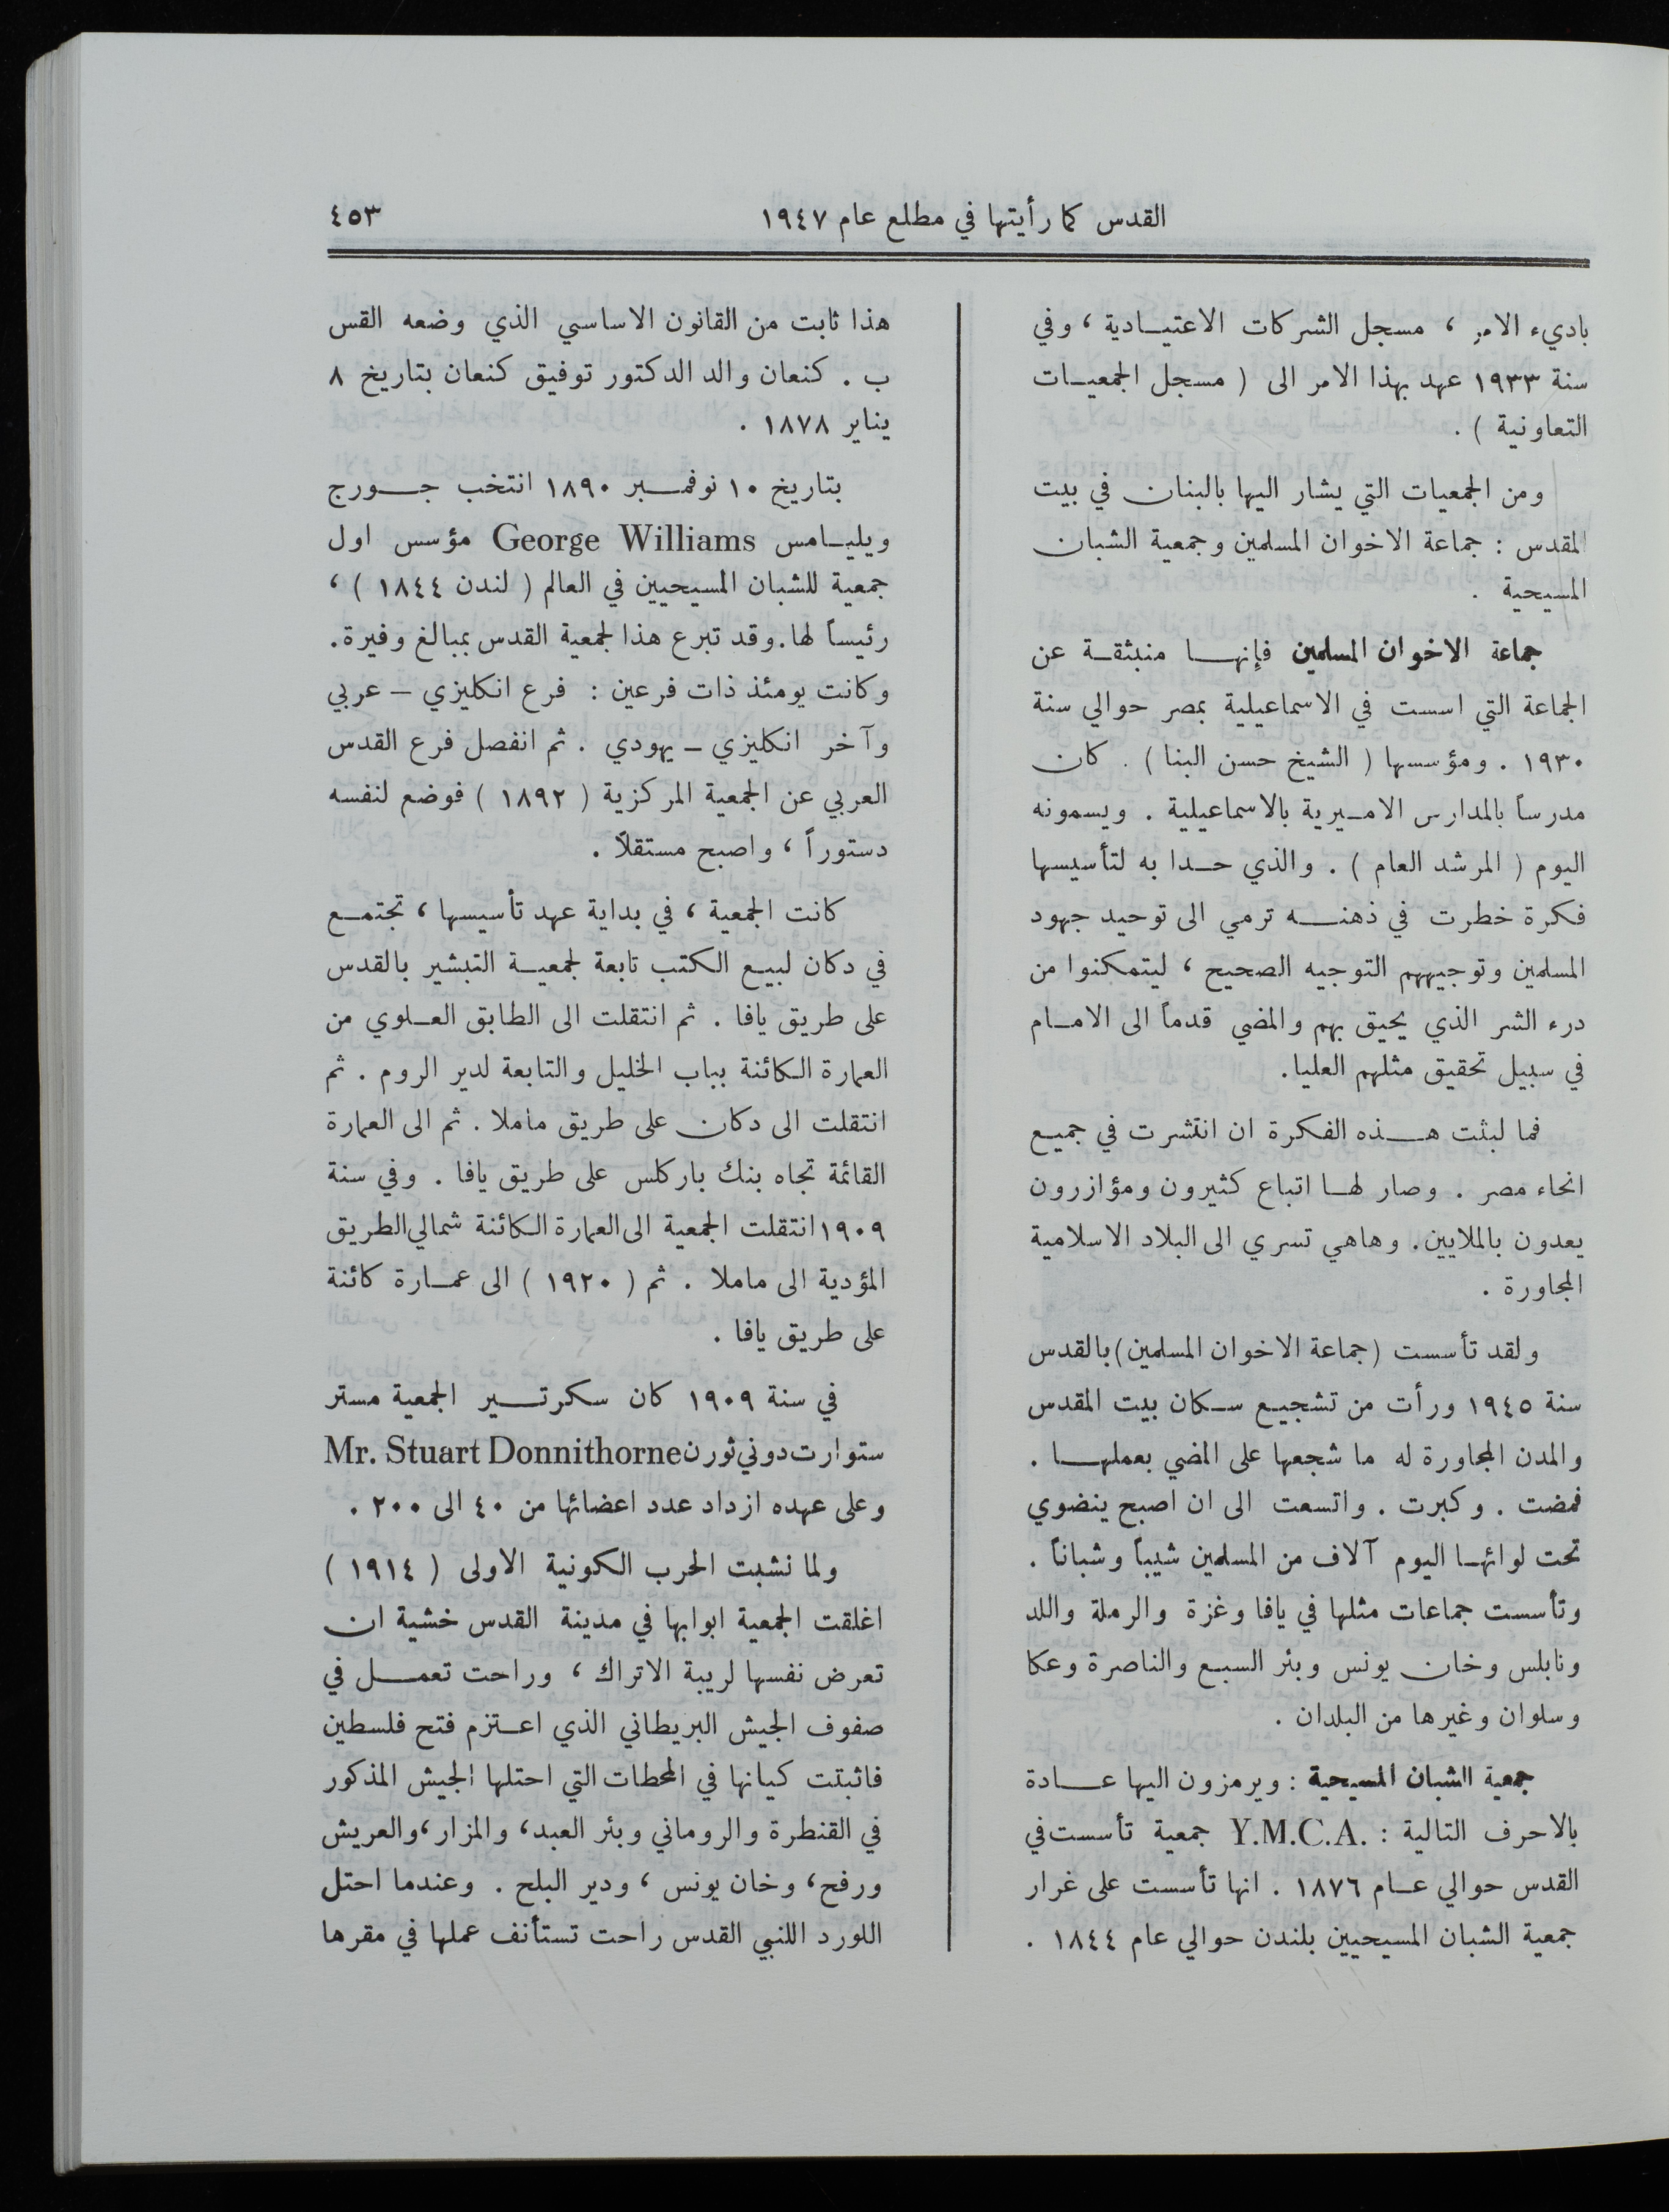 القدس كما رأيتها في مطلع عام ١٩٤٧
٤٥٣
باديء الامر ، مسجل الشركات الاعتيادية ، وفي
سنة ١٩٣٣ عهد بهذا الامر الى ( مسجل الجمعيات
التعاونية ) .
ومن الجمعيات التي يشار اليها بالبنان في بيت
المقدس : جماعة الاخوان المسلمين وجمعية الشبان
المسيحية .
جماعة الاخوان المسلمين فإنها منبثقة عن
الجماعة التي اسست في الاسماعيلية بمصر حوالي سنة
١٩٣٠ . ومؤسسها ( الشيخ حسن البنا ) . كان
مدرساً بالمدارس الاميرية بالاسماعيلية . ويسمونه
اليوم ( المرشد العام ) . والذي حدا به لتأسيسها
فكرة خطرت في ذهنه ترمي الى توحيد جهود
المسلمين وتوجيههم التوجيه الصحيح ، ليتمكنوا من
درء الشر الذي يحيق بهم والمضي قدماً الى الامام
في سبيل تحقيق مثلهم العليا.
فما لبثت هذه الفكرة ان انتشرت في جميع
انحاء مصر . وصار لها اتباع كثيرون ومؤازرون
يعدون بالملايين. وهاهي تسري الى البلاد الاسلامية
المجاورة .
ولقد تأسست (جماعة الاخوان المسلمين) بالقدس
سنة ١٩٤٥ ورأت من تشجيع سكان بيت المقدس
والمدن المجاورة له ما شجعها على المضي بعملها .
فمضت . وكبرت . واتسعت الى ان اصبح ينضوي
تحت لوائها اليوم آلاف من المسلمين شيباً وشباناً .
وتأسست جماعات مثلها في يافا وغزة والرملة واللد
ونابلس وخان يونس وبئر السبع والناصرة وعكا
وسلوان وغيرها من البلدان .
جمعية الشبان المسيحية : ويرمزون اليها عادة
بالاحرف التالية : Y.M.C.A. جمعية تأسست في
القدس حوالي عام ١٨٧٦ . انها تأسست على غرار
جمعية الشبان المسيحيين بلندن حوالي عام ١٨٤٤ .
هذا ثابت من القانون الاساسي الذي وضعه القس
ب . كنعان والد الدكتور توفيق كنعان بتاريخ ٨
يناير ١٨٧٨ .
بتاريخ ١٠ نوفمبر ١٨٩٠ انتخب جورج
ويليامس George Williams مؤسس اول
جمعية للشبان المسيحيين في العالم ( لندن ١٨٤٤ ) ،
رئيساً لها. وقد تبرع هذا لجمعية القدس بمبالغ وفيرة.
وكانت يومئذ ذات فرعين : فرع انكليزي – عربي
وآخر انكليزي – يهودي . ثم انفصل فرع القدس
العربي عن الجمعية المركزية ( ١٨٩٢ ) فوضع لنفسه
دستوراً ، واصبح مستقلاً .
كانت الجمعية ، في بداية عهد تأسيسها ، تجتمع
في دكان لبيع الكتب تابعة لجمعية التبشير بالقدس
على طريق يافا . ثم انتقلت الى الطابق العلوي من
العمارة الكائنة بباب الخليل والتابعة لدير الروم . ثم
انتقلت الى دكان على طريق ماملا . ثم الى العمارة
القائمة تجاه بنك باركلس على طريق يافا . وفي سنة
١٩٠٩ انتقلت الجمعية الى العمارة الكائنة شمالي الطريق
المؤدية الى ماملا . ثم ( ١٩٢٠ ) الى عمارة كائنة
على طريق يافا .
في سنة ١٩٠٩ كان سكرتير الجمعية مستر
ستوارت دوني ثورن Mr. Stuart Donnithorne
وعلى عهده ازداد عدد اعضائها من ٤٠ الى ٢٠٠ .
ولما نشبت الحرب الكونية الاولى ( ١٩١٤ )
اغلقت الجمعية ابوابها في مدينة القدس خشية ان
تعرض نفسها لريبة الاتراك ، وراحت تعمل في
صفوف الجيش البريطاني الذي اعتزم فتح فلسطين
فاثبتت كيانها في المحطات التي احتلها الجيش المذكور
في القنطرة والروماني وبئر العبد، والمزار، والعريش
ورفح، وخان يونس ، ودير البلح . وعندما احتل
اللورد اللنبي القدس راحت تستأنف عملها في مقرها